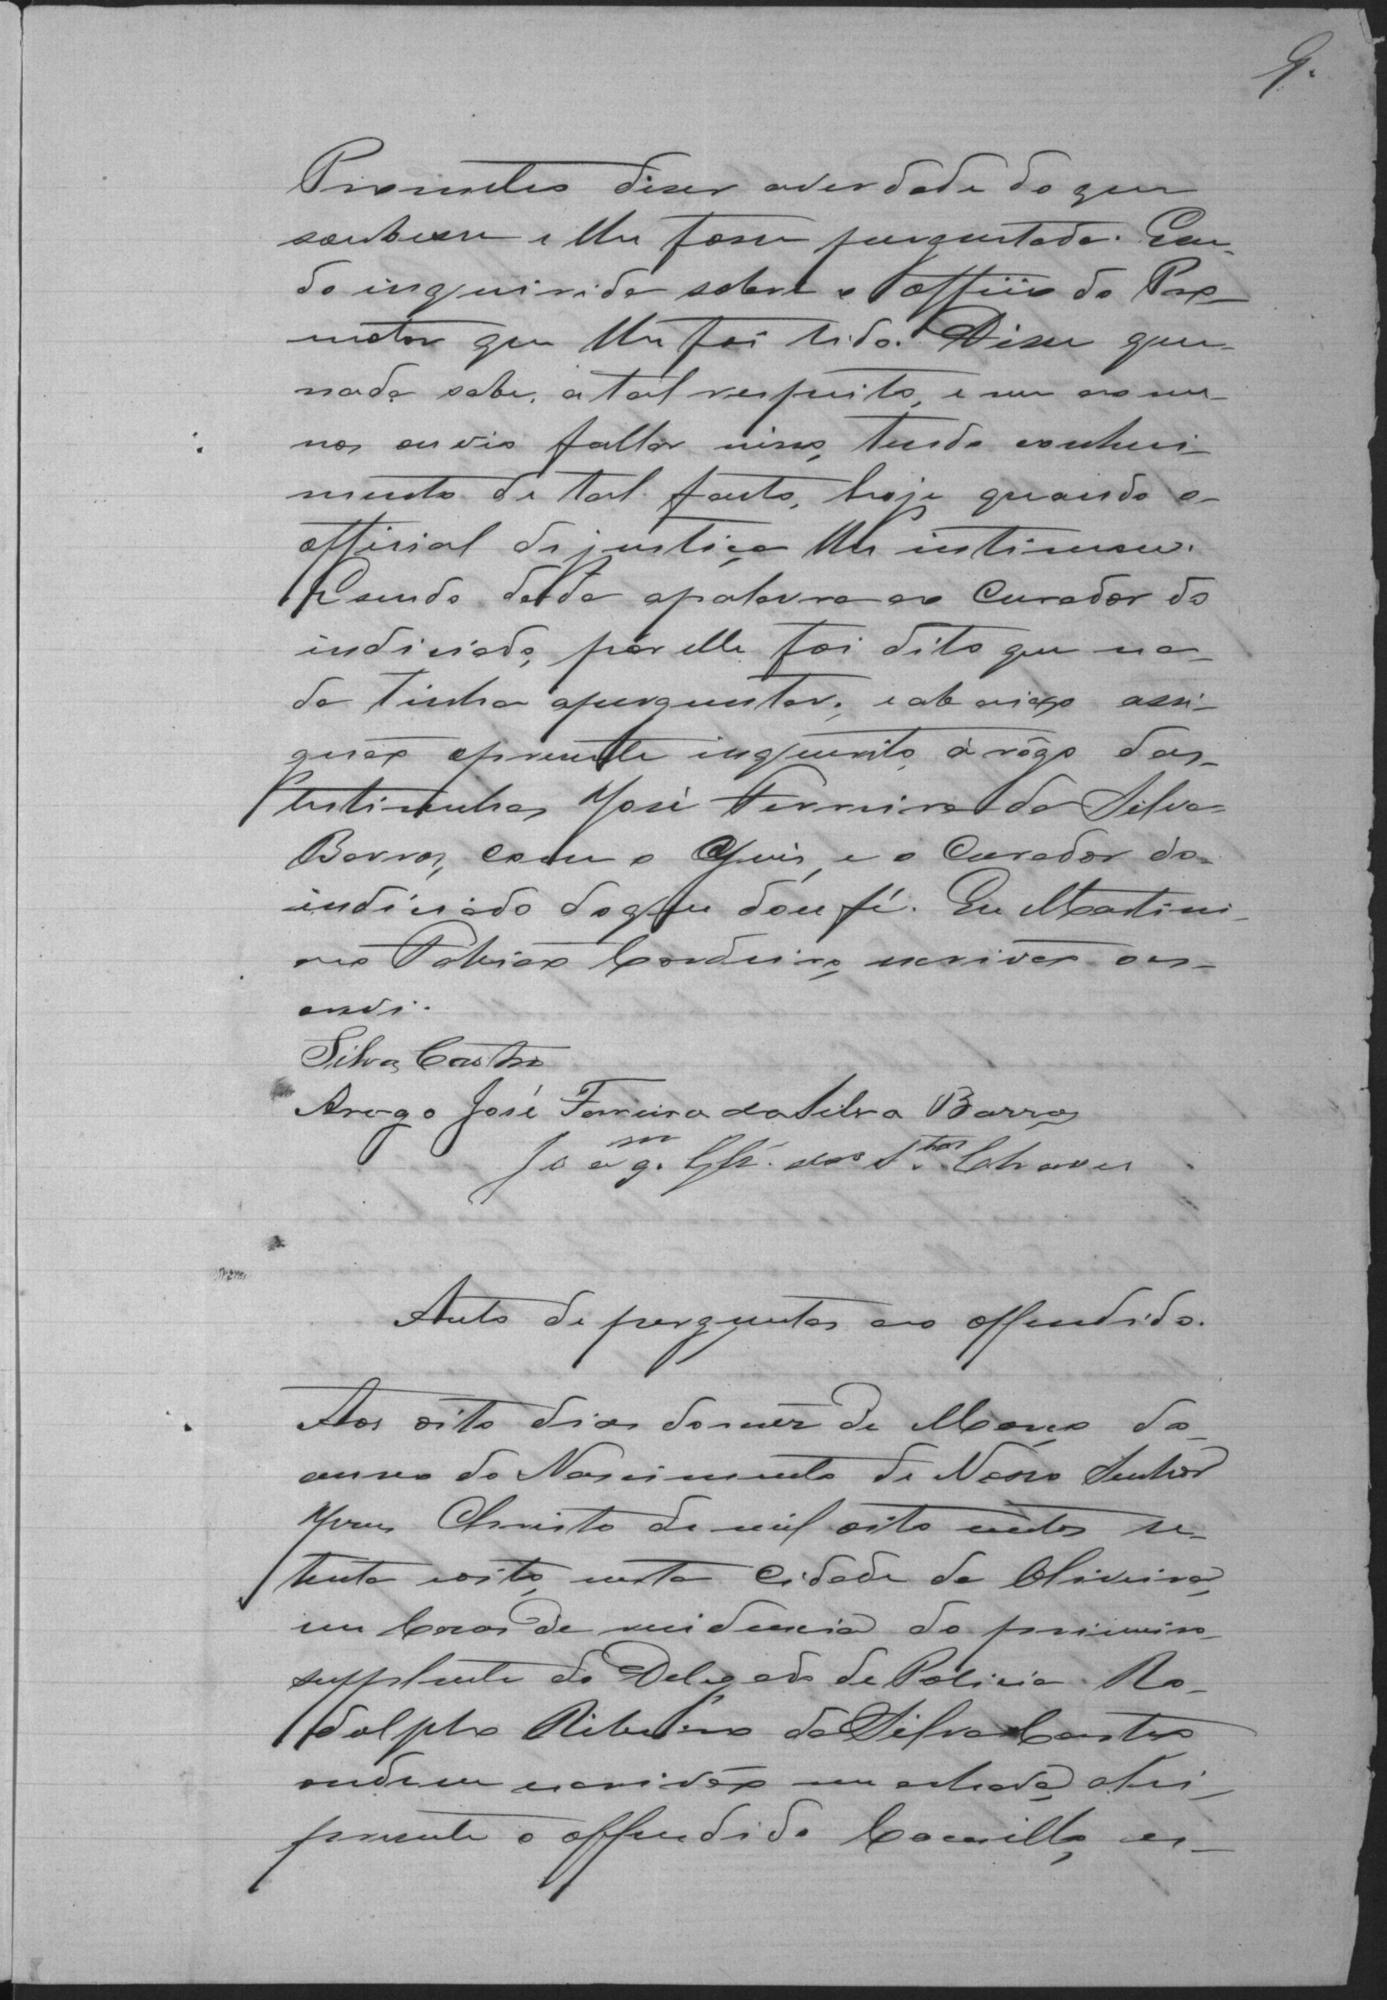 9.
Prometeo diser averdade do que
soubesse e lhe fosse perguntado. Esen-
do inquirida sobre o officio do Pro-
motor que lhe foi lido. Disse que
nada sabe, a tal respeito, e nem ao me-
nos ouvio fallar nisso, tendo conheci-
mento de tal facto, hoje quando o
official de justiça lhe intimou.
E sendo dada apalavra ao Curador do
indiciado, por elle foi dito que na-
da tinha aperguntar; e abaixo assi-
gnão opresente inquerito, á rôgo das
testimunhas José Ferreira da Silva
Barros, com o Juis, e o Curador do
indiciado doque dou fé. Eu Martini-
ano Tobias Cordeiro, escrivão o es-
crevi.
Silva Castro
Arogo José Ferreira da Silva Barros
Joaqm. Gé. dos Stos. Chaves
Auto de perguntas ao offendido.
Aos oito dias do mêz de Março do
anno do Nascimento de Nosso Senhor
Jesus Christo de mil oito centos se-
tenta e oito, nesta Cidade da Oliveira,
em Casas de residencia do primeiro
supplente do Delegado de Policia Ro-
dolpho Ribeiro da Silva Castro
onde eu escrivão me achava, ahi
presente o offendido Camillo, es-